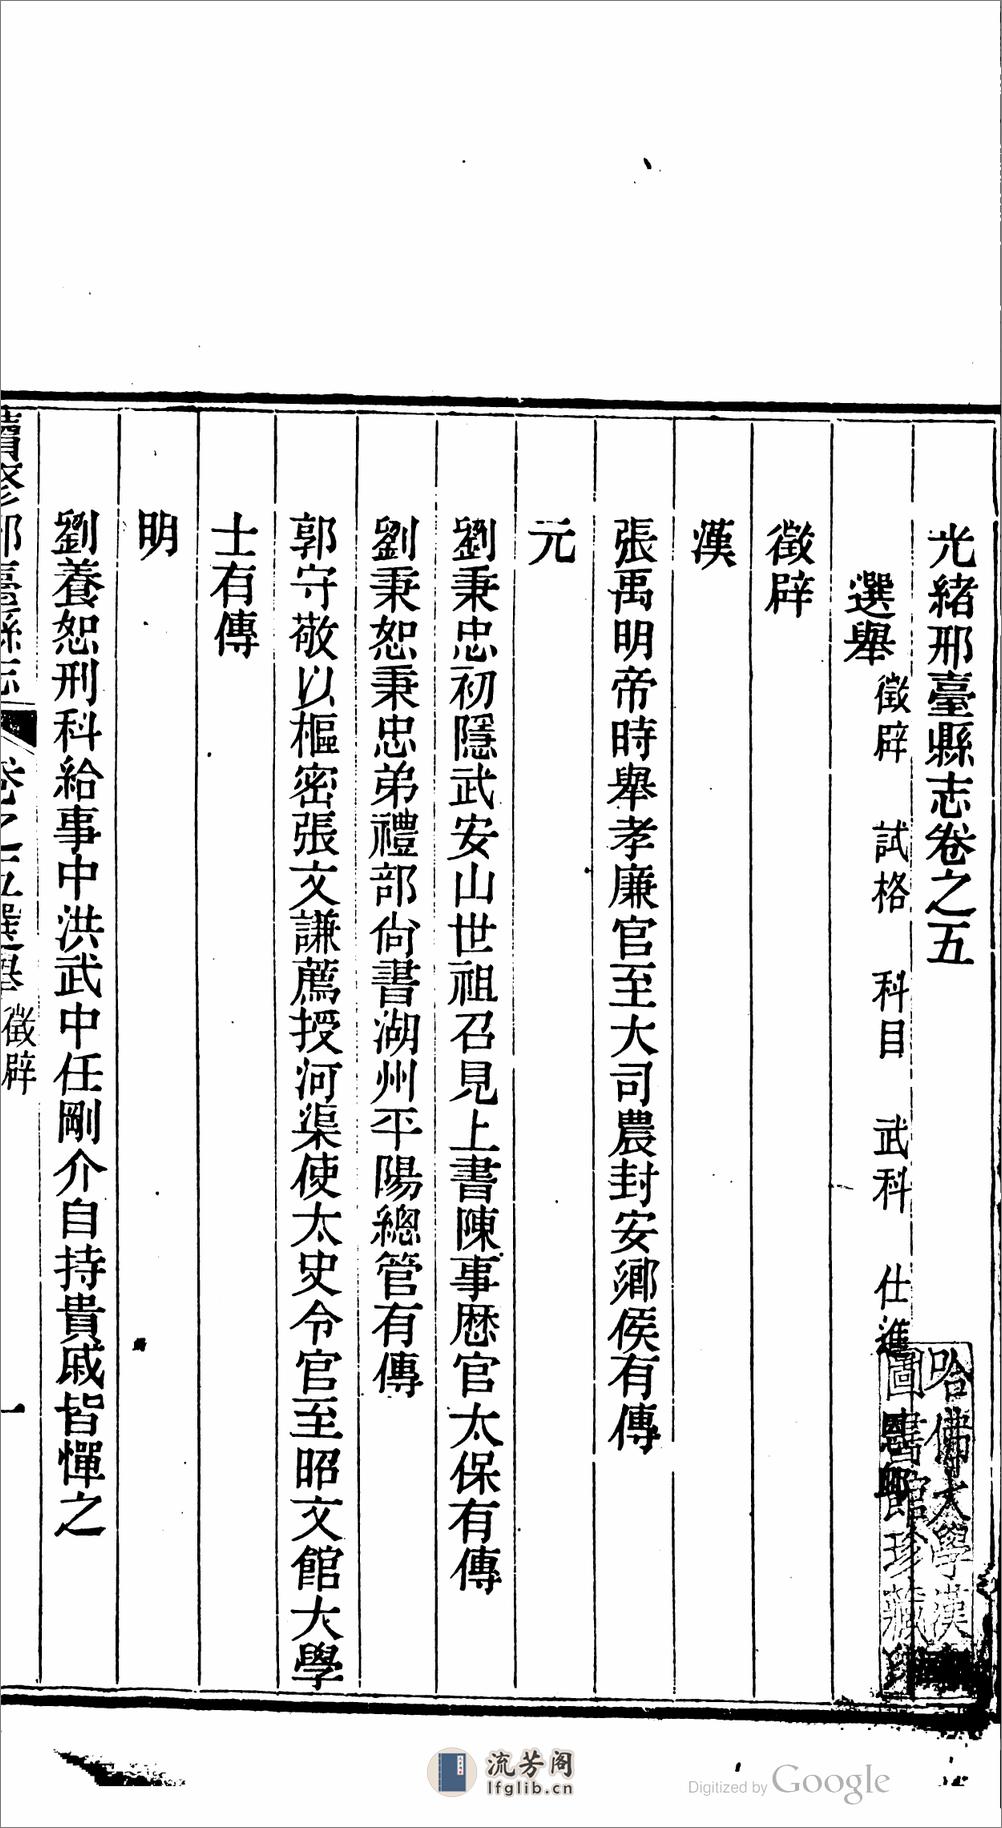 光緒邢臺縣志卷之五
選舉 徵辟 試格 科目 武科 仕進 恩卹
徵辟
漢
張禹明帝時舉孝廉官至大司農封安鄉侯有傳
元
劉秉忠初隱武安山世祖召見上書陳事歷官太保有傳
劉秉恕秉忠弟禮部尙書湖州平陽總管有傳
郭守敬以樞密張文謙薦授河渠使太史令官至昭文館大學
士有傳
明
劉養恕刑科給事中洪武中任剛介自持貴戚皆憚之
續修邢臺縣志 卷之五選舉 徵辟 一
哈佛大學漢
圖書館珍藏印
流芳阁
lfglib.cn
Digitized by Google